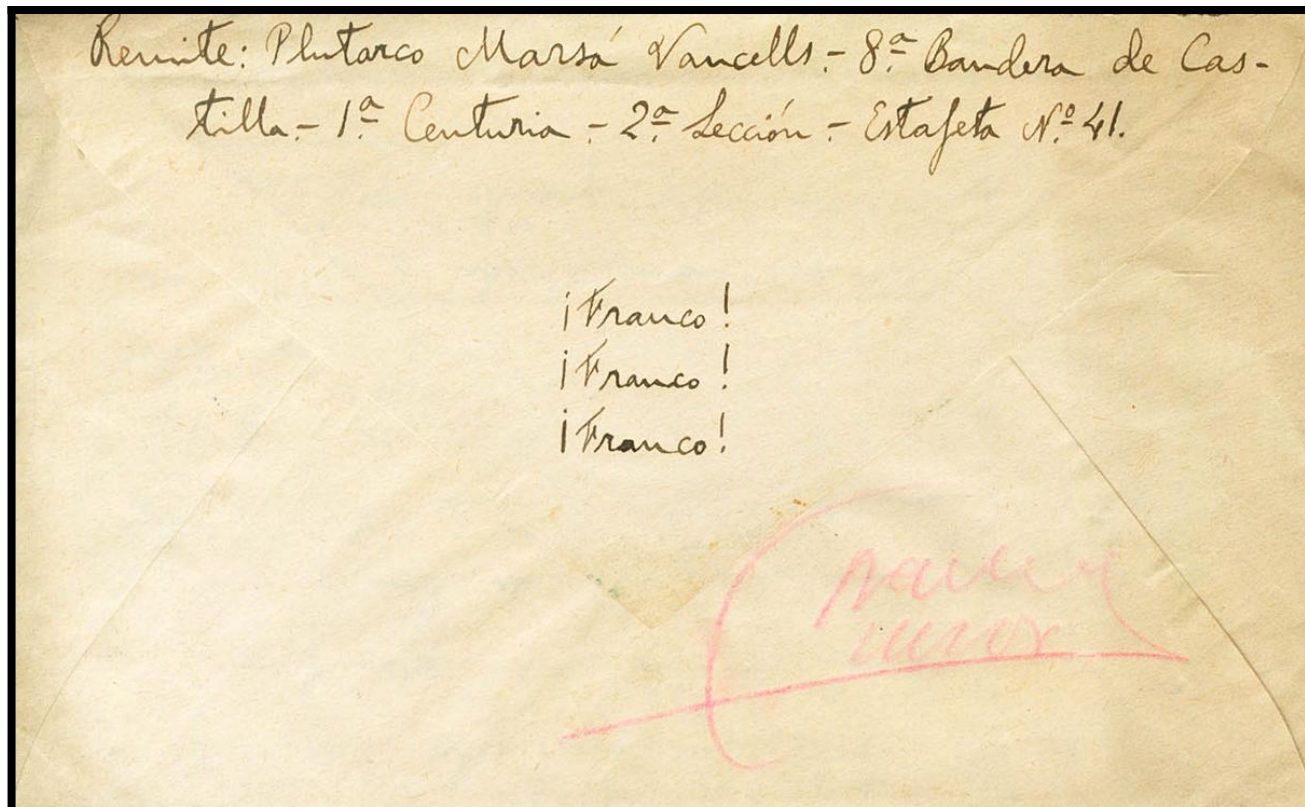 Remite: Plutarco Marsá Vancells.- 8.ª Bandera de Cas-
tilla - 1.ª Centuria - 2.ª Sección - Estafeta N.º 41.
¡Franco!
¡Franco!
¡Franco!